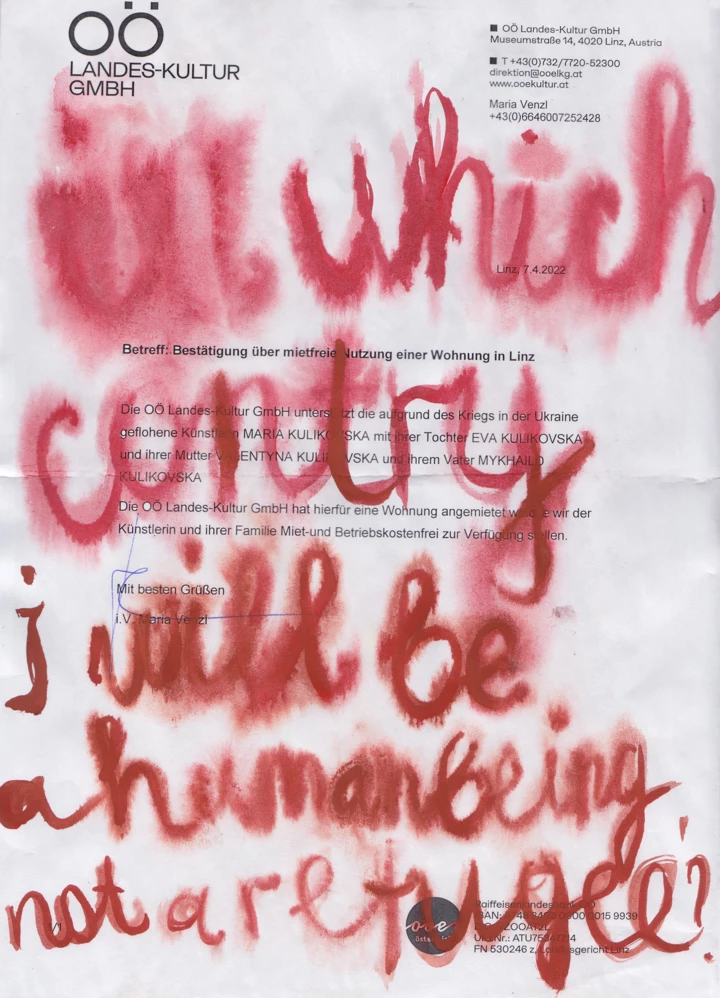 OÖ
LANDES-KULTUR
GMBH
OÖ Landes-Kultur GmbH
Museumstraße 14, 4020 Linz, Austria
T +43(0)732/7720-52300
direktion@ooelkg.at
www.ooekultur.at
Maria Venzl
+43(0)6646007252428
in which
Linz, 7.4.2022
Betreff: Bestätigung über mietfreie Nutzung einer Wohnung in Linz
contry
Die OÖ Landes-Kultur GmbH unterstützt die aufgrund des Kriegs in der Ukraine
geflohene Künstlerin MARIA KULIKOVSKA mit ihrer Tochter EVA KULIKOVSKA
und ihrer Mutter VALENTYNA KULIKOVSKA und ihrem Vater MYKHAILO
KULIKOVSKA
Die OÖ Landes-Kultur GmbH hat hierfür eine Wohnung angemietet welche wir der
Künstlerin und ihrer Familie Miet-und Betriebskostenfrei zur Verfügung stellen.
Mit besten Grüßen
i.V. Maria Venzl
i will be
a human being
not a refugee?
1/1
Raiffeisenlandesbank OÖ
0015 9939
FN 530246 z, Landesgericht Linz